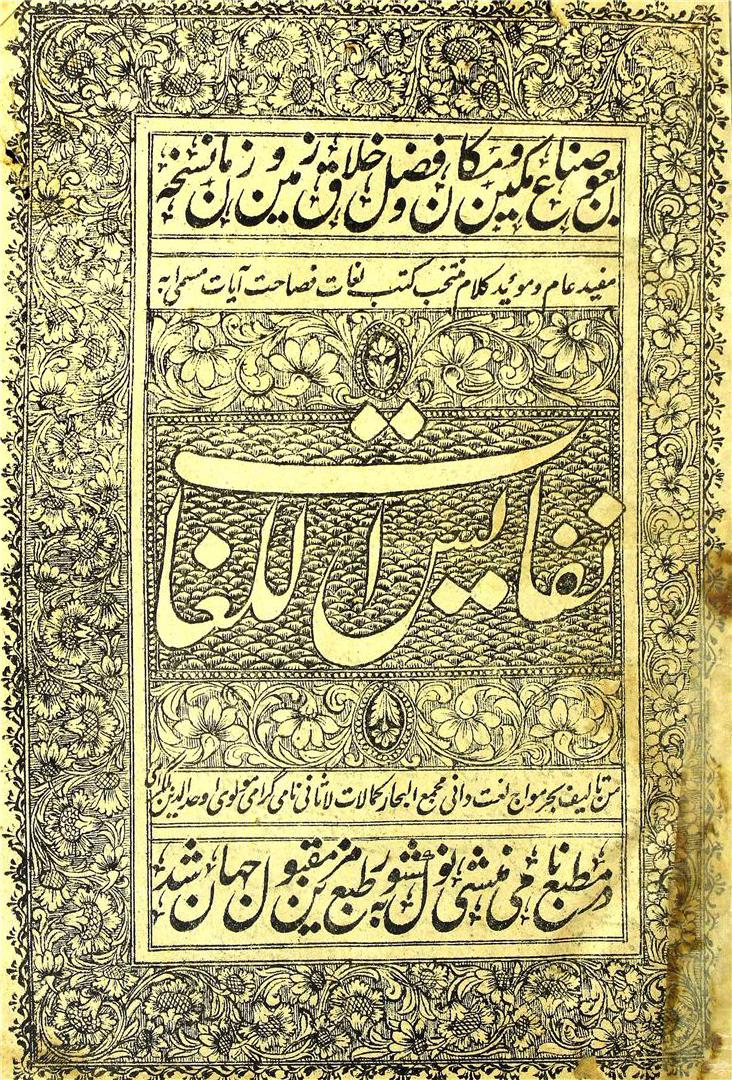 بعون صناع مکین و مکان و فضل خلاق زمین و زمان نسخه
مفید عام و موئید کلام منتخب کتب لغات فصاحت آیات مسمی به
نفایس اللغات
من تالیف بحر مواج لغت دانی مجمع البحار کمالات لاثانی نامی گرامی مولوی اوحد الدین بلگرامی
در مطبع نامی منشی نول کشور بطبع مزین مقبول جهان شد